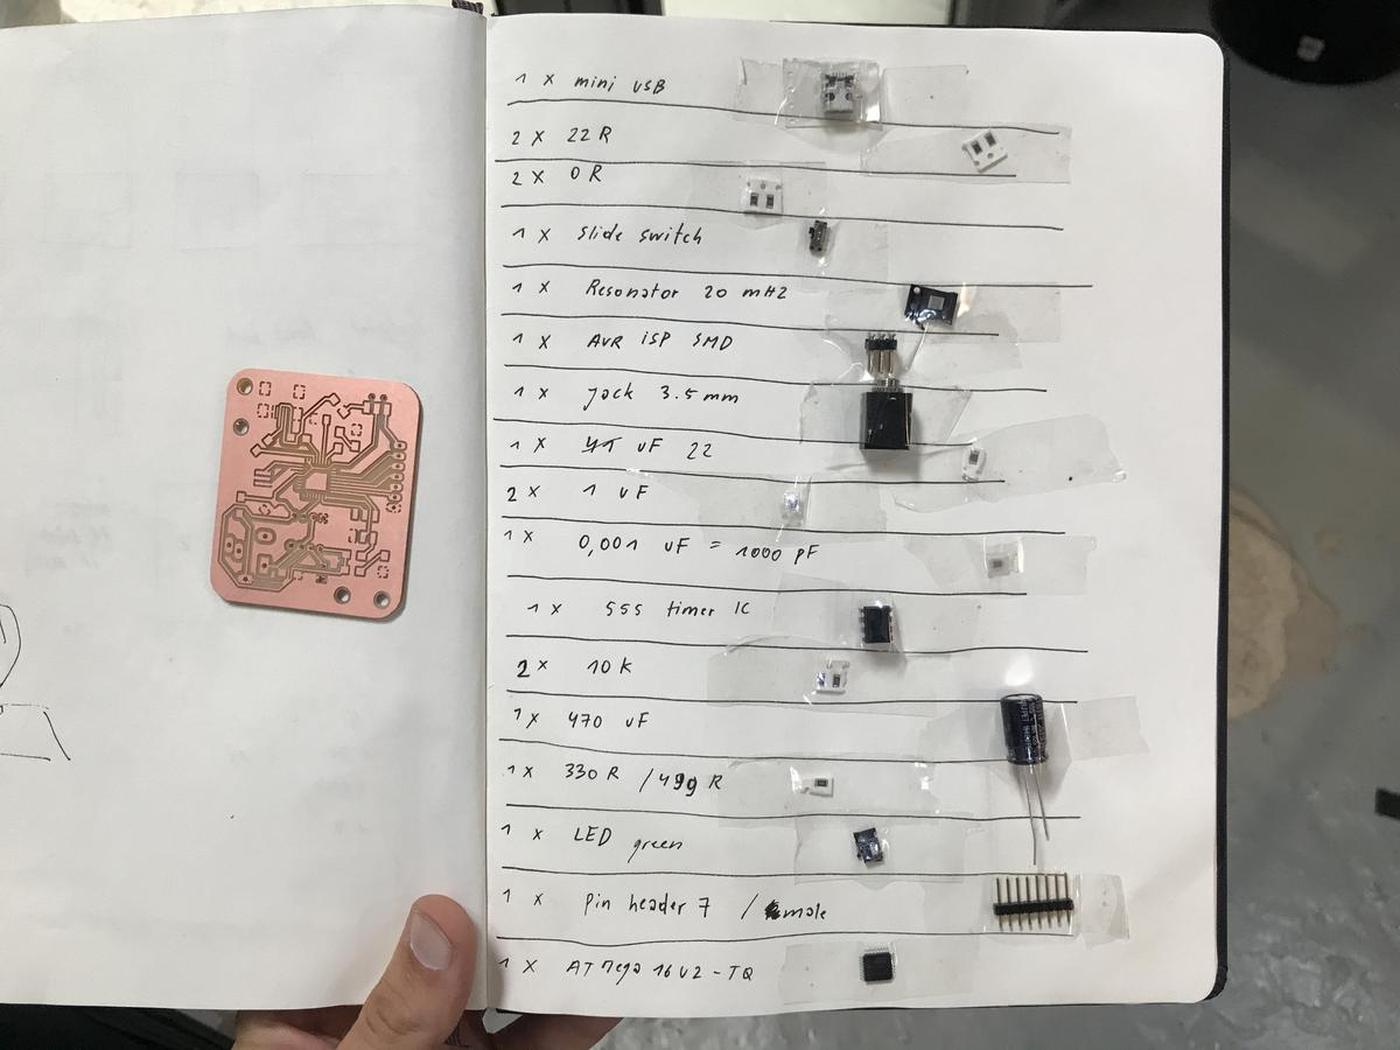 1 x mini USB
2 x 22 R
2 x 0 R
1 x slide switch
1 x Resonator 20 mHz
1 x AVR iSP SMD
1 x jack 3.5 mm
1 x uF 22
2 x 1 uF
1 x 0,001 uF = 1000 pF
1 x 555 timer IC
2 x 10 k
1 x 470 uF
1 x 330 R / 499 R
1 x LED green
1 x pin header 7 / male
1 x ATMega 16U2 - TQ